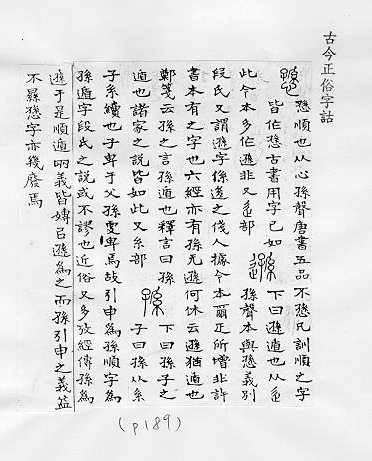 古今正俗字詁
愻 愻順也从心孫聲唐書五品不愻凡訓順之字
皆作愻古書用字已如
此今本多作遜非又辵部 遜 下曰遜遁也从辵
孫聲本與愻義別
段氏又謂遜字係後之俴人據今本爾正所增非許
書本有之字也六經亦有孫无遜何休云遜猶遁也
鄭箋云孫之言孫遁也釋言曰孫
遁也諸家之說皆如此又系部 孫 下曰孫子之
子曰孫从系
子系續也子卑于父孫更卑焉故引申為孫順字為
孫遁字段氏之說或不謬也近俗又多改經傳孫為
遜于是順遁兩義皆專㠯遜為之而孫引申之義益
不㬎愻字亦幾廢焉
(p189)